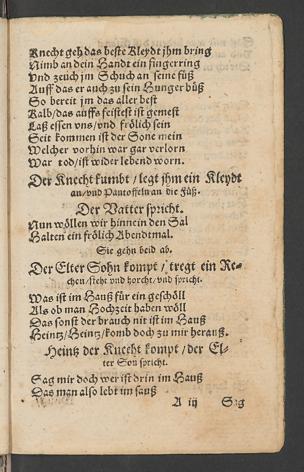 Knecht geh das beste Kleydt jhm bring
Nimb an dein Handt ein fingerring
Vnd zeuch jm Schuch an seine füß
Auff das er auch zu sein Hunger büß
So bereit jm das aller best
Kalb/das auffs feistest ist gemest
Laß essen vns/vnd frölich sein
Seit kommen ist der Sone mein
Welcher vorhin war gar verlorn
War tod/ist wider lebend worn.
Der Knecht kumbt/legt jhm ein Kleydt
an/vnd Pantoffeln an die Füß.
Der Vatter spricht.
Nun wöllen wir hinnein den Sal
Halten ein frölich Abendtmal.
Sie gehn beid ab.
Der Elter Sohn kompt/tregt ein Re-
chen/steht vnd horcht/vnd spricht.
Was ist im Hauß für ein geschöll
Als ob man Hochzeit haben wöll
Das sonst der brauch nit ist im Hauß
Heintz/Heintz/komb doch zu mir herauß.
Heintz der Knecht kompt/der El-
ter Son spricht.
Sag mir doch wer ist drin im Hauß
Das man also lebt im sauß
A iij Sag